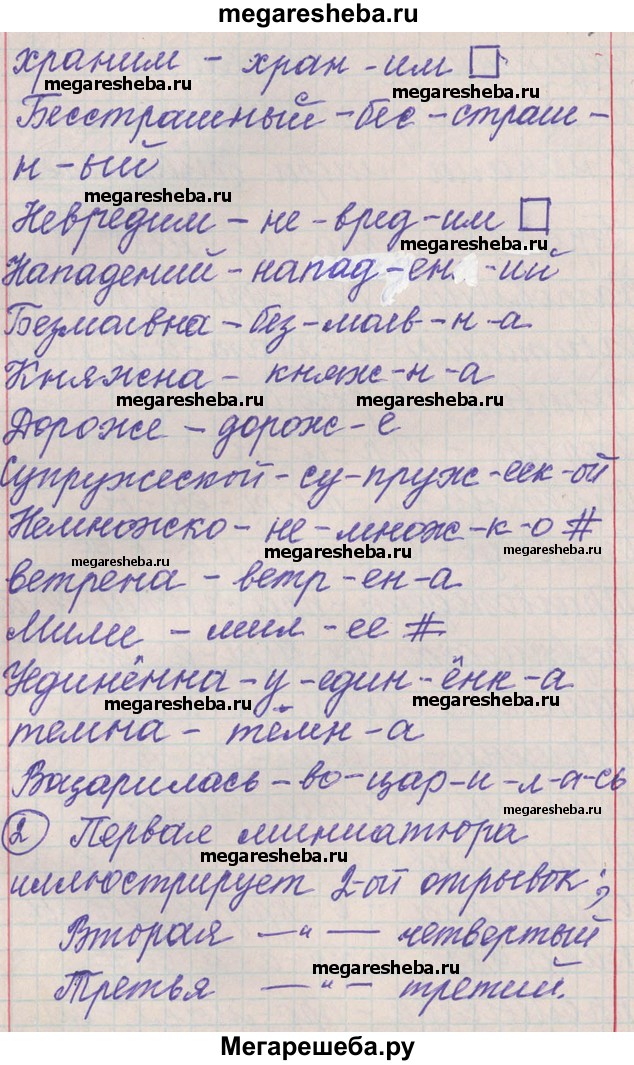 megaresheba.ru
храним - хран - им □
megaresheba.ru
megaresheba.ru
Бесстрашный - бес - страш -
н - ый
megaresheba.ru
Невредим - не - вред - им □
megaresheba.ru
Нападений - напад - ен - ий
Безмолвна - без - молв - н - а
Княжна - княж - н - а
megaresheba.ru
megaresheba.ru
Дороже - дорож - е
Супружеской - су - пруж - еск - ой
Немножко - не - множ - к - о #
megaresheba.ru
megaresheba.ru
megaresheba.ru
ветрена - ветр - ен - а
Милее - мил - ее #
megaresheba.ru
Удинённа - у - един - ённ - а
megaresheba.ru
темна - тёмн - а
Воцарилась - во - цар - и - л - а - сь
megaresheba.ru
2 Первая миниатюра
megaresheba.ru
иллюстрирует 2-ой отрывок;
Вторая —"— четвертый
megaresheba.ru
Третья —"— третий.
Мегарешеба.ру